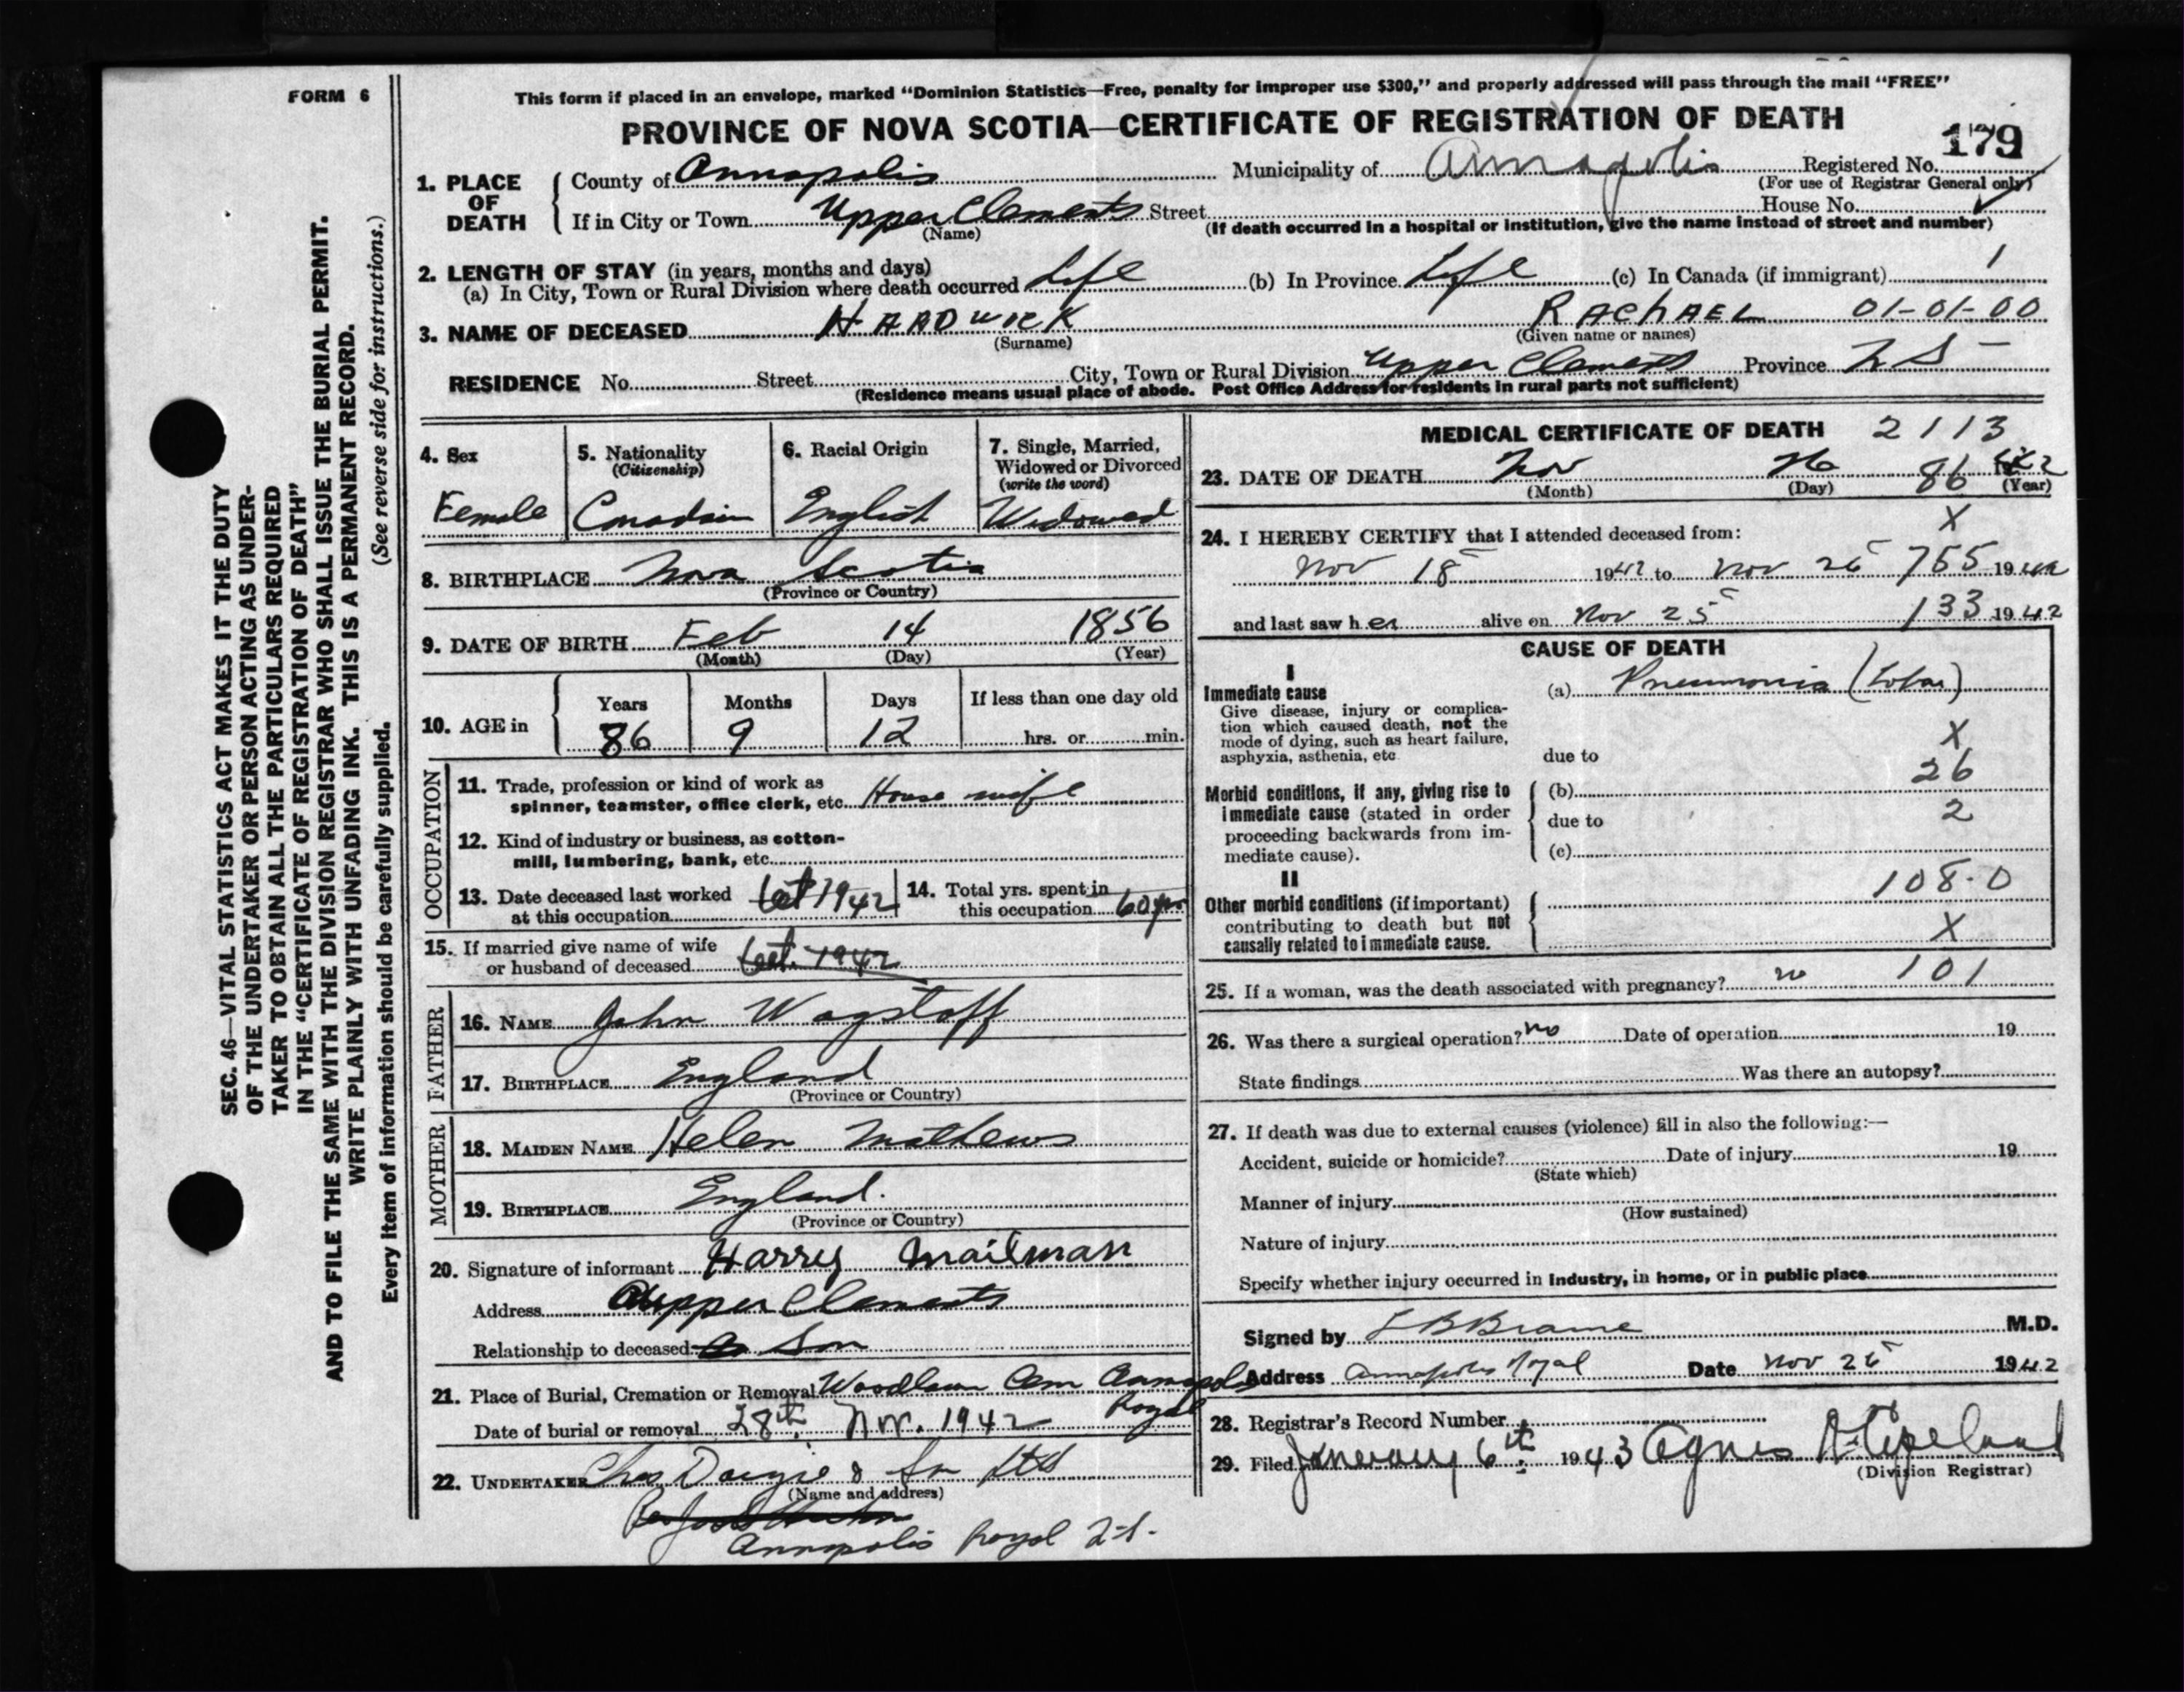 FORM 6
This form if placed in an envelope, marked "Dominion Statistics—Free, penalty for improper use $300," and properly addressed will pass through the mail "FREE"
PROVINCE OF NOVA SCOTIA—CERTIFICATE OF REGISTRATION OF DEATH
179
1. PLACE OF DEATH
County of Annapolis Municipality of Annapolis Registered No.
(For use of Registrar General only)
If in City or Town Upper Clements Street House No.
(Name) (If death occurred in a hospital or institution, give the name instead of street and number)
2. LENGTH OF STAY (in years, months and days)
(a) In City, Town or Rural Division where death occurred Life (b) In Province Life (c) In Canada (if immigrant) 1
3. NAME OF DECEASED HARDWICK RAChAEL 01-01-00
(Surname) (Given name or names)
RESIDENCE No. Street City, Town or Rural Division Upper Clements Province N S -
(Residence means usual place of abode. Post Office Address for residents in rural parts not sufficient)
4. Sex
Female
5. Nationality
(Citizenship)
Canadian
6. Racial Origin
English
7. Single, Married, Widowed or Divorced
(write the word)
Widowed
8. BIRTHPLACE Nova Scotia
(Province or Country)
9. DATE OF BIRTH Feb 14 1856
(Month) (Day) (Year)
10. AGE in
Years Months Days If less than one day old
86 9 12 hrs. or min.
OCCUPATION
11. Trade, profession or kind of work as
spinner, teamster, office clerk, etc. House wife
12. Kind of industry or business, as cotton-
mill, lumbering, bank, etc.
13. Date deceased last worked
at this occupation Oct 1942
14. Total yrs. spent in
this occupation 60 yrs
15. If married give name of wife
or husband of deceased Oct. 1942
FATHER
16. NAME John Wagstaff
17. BIRTHPLACE England
(Province or Country)
MOTHER
18. MAIDEN NAME Helen Mathews
19. BIRTHPLACE England.
(Province or Country)
20. Signature of informant Harry Mailman
Address Upper Clements
Relationship to deceased Son
21. Place of Burial, Cremation or Removal Woodlawn Cem Annapolis Royal
Date of burial or removal 28th. Nov. 1942
22. UNDERTAKER Chas Dargie & Son Ltd
(Name and address)
Annapolis Royal N.S.
MEDICAL CERTIFICATE OF DEATH 2113
23. DATE OF DEATH Nov 26 86 1942
(Month) (Day) (Year)
X
24. I HEREBY CERTIFY that I attended deceased from:
Nov 18 1942 to Nov 26 755 1942
and last saw her alive on Nov 25 133 1942
CAUSE OF DEATH
I
Immediate cause
Give disease, injury or complica-
tion which caused death, not the
mode of dying, such as heart failure,
asphyxia, asthenia, etc
(a) Pneumonia (Lobar)
X
due to
26
Morbid conditions, if any, giving rise to
immediate cause (stated in order
proceeding backwards from im-
mediate cause).
(b)
2
due to
(c)
108.0
II
Other morbid conditions (if important)
contributing to death but not
causally related to immediate cause.
X
25. If a woman, was the death associated with pregnancy? no 101
26. Was there a surgical operation? no Date of operation 19
State findings Was there an autopsy?
27. If death was due to external causes (violence) fill in also the following:—
Accident, suicide or homicide? Date of injury 19
(State which)
Manner of injury
(How sustained)
Nature of injury
Specify whether injury occurred in Industry, in home, or in public place
Signed by L B Braine M.D.
Address Annapolis Royal Date Nov 26 1942
28. Registrar's Record Number
29. Filed January 6th. 1943 Agnes
(Division Registrar)
SEC. 46—VITAL STATISTICS ACT MAKES IT THE DUTY
OF THE UNDERTAKER OR PERSON ACTING AS UNDER-
TAKER TO OBTAIN ALL THE PARTICULARS REQUIRED
IN THE "CERTIFICATE OF REGISTRATION OF DEATH"
AND TO FILE THE SAME WITH THE DIVISION REGISTRAR WHO SHALL ISSUE THE BURIAL PERMIT.
WRITE PLAINLY WITH UNFADING INK. THIS IS A PERMANENT RECORD.
(See reverse side for instructions.)
Every item of information should be carefully supplied.